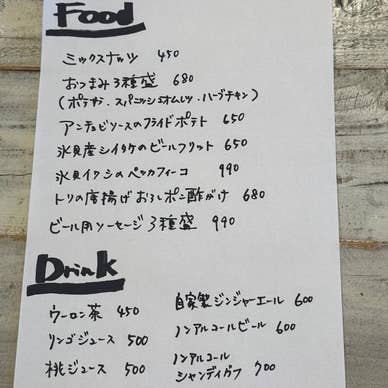 Food
ミックスナッツ 450
おつまみ3種盛 680
(ポテサラ・スパニッシュオムレツ・ハーブチキン)
アンチョビソースのフライドポテト 650
氷見産シイタケのビールフリット 650
氷見イワシのベッカフィーコ 990
トリの唐揚げおろしポン酢がけ 680
ビール用ソーセージ3種盛 990
Drink
ウーロン茶 450
リンゴジュース 500
桃ジュース 500
自家製ジンジャーエール 600
ノンアルコールビール 600
ノンアルコール
シャンディガフ 700